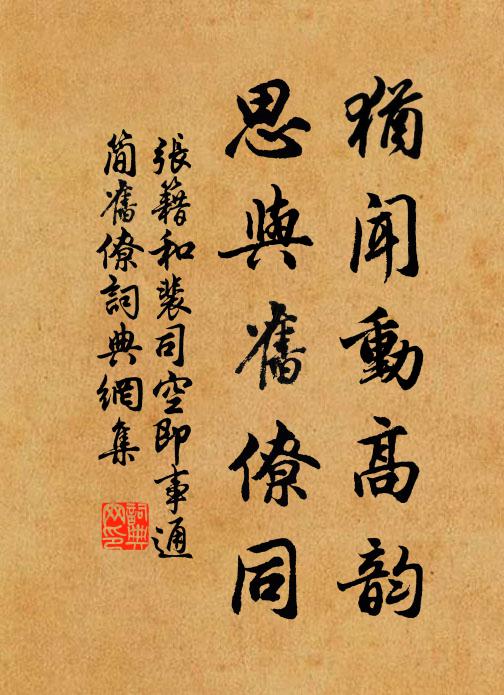 猶聞動高韵
思與舊僚同
張籍和裴司空即事通
簡舊僚詞典網集
詞典
网印